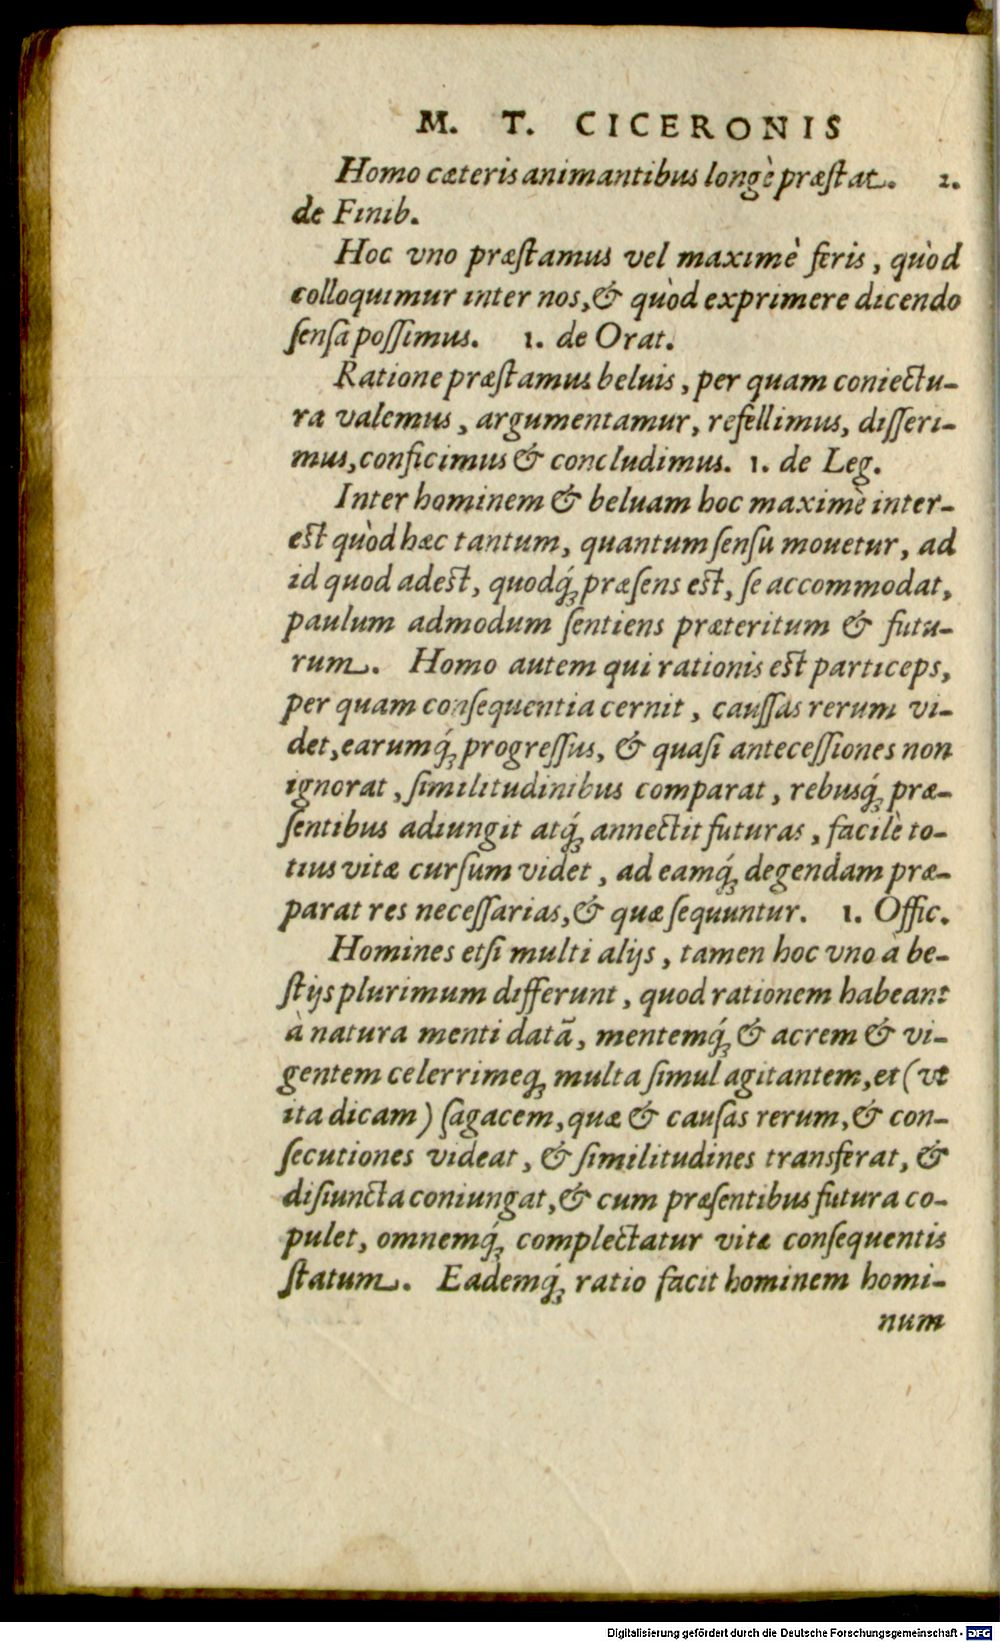 M. T. CICERONIS
Homo cæteris animantibus longè præſtat. 2.
de Finib.
Hoc vno præſtamus vel maximè feris, quòd
colloquimur inter nos, & quòd exprimere dicendo
ſenſa poſſimus. 1. de Orat.
Ratione præſtamus beluis, per quam coniectu-
ra valemus, argumentamur, refellimus, diſſeri-
mus, conficimus & concludimus. 1. de Leg.
Inter hominem & beluam hoc maximè inter-
eſt quòd hæc tantum, quantum ſenſu mouetur, ad
id quod adeſt, quodq́ꝫ præſens eſt, ſe accommodat,
paulum admodum ſentiens præteritum & futu-
rum. Homo autem qui rationis eſt particeps,
per quam conſequentia cernit, cauſſas rerum vi-
det, earumq́ꝫ progreſſus, & quaſi anteceſſiones non
ignorat, ſimilitudinibus comparat, rebusq́ꝫ præ-
ſentibus adiungit atq́ꝫ annectit futuras, facilè to-
tius vitæ curſum videt, ad eamq́ꝫ degendam præ-
parat res neceſſarias, & quæ ſequuntur. 1. Offic.
Homines etſi multi alijs, tamen hoc vno à be-
ſtijs plurimum differunt, quod rationem habeant
à natura menti datã, mentemq́ꝫ & acrem & vi-
gentem celerrimeqꝫ multa ſimul agitantem, et (vt
ita dicam) ſagacem, quæ & cauſas rerum, & con-
ſecutiones videat, & ſimilitudines transferat, &
diſiuncta coniungat, & cum præſentibus futura co-
pulet, omnemq́ꝫ complectatur vitæ conſequentis
ſtatum. Eademq́ꝫ ratio facit hominem homi-
num
Digitalisierung gefördert durch die Deutsche Forschungsgemeinschaft - DFG